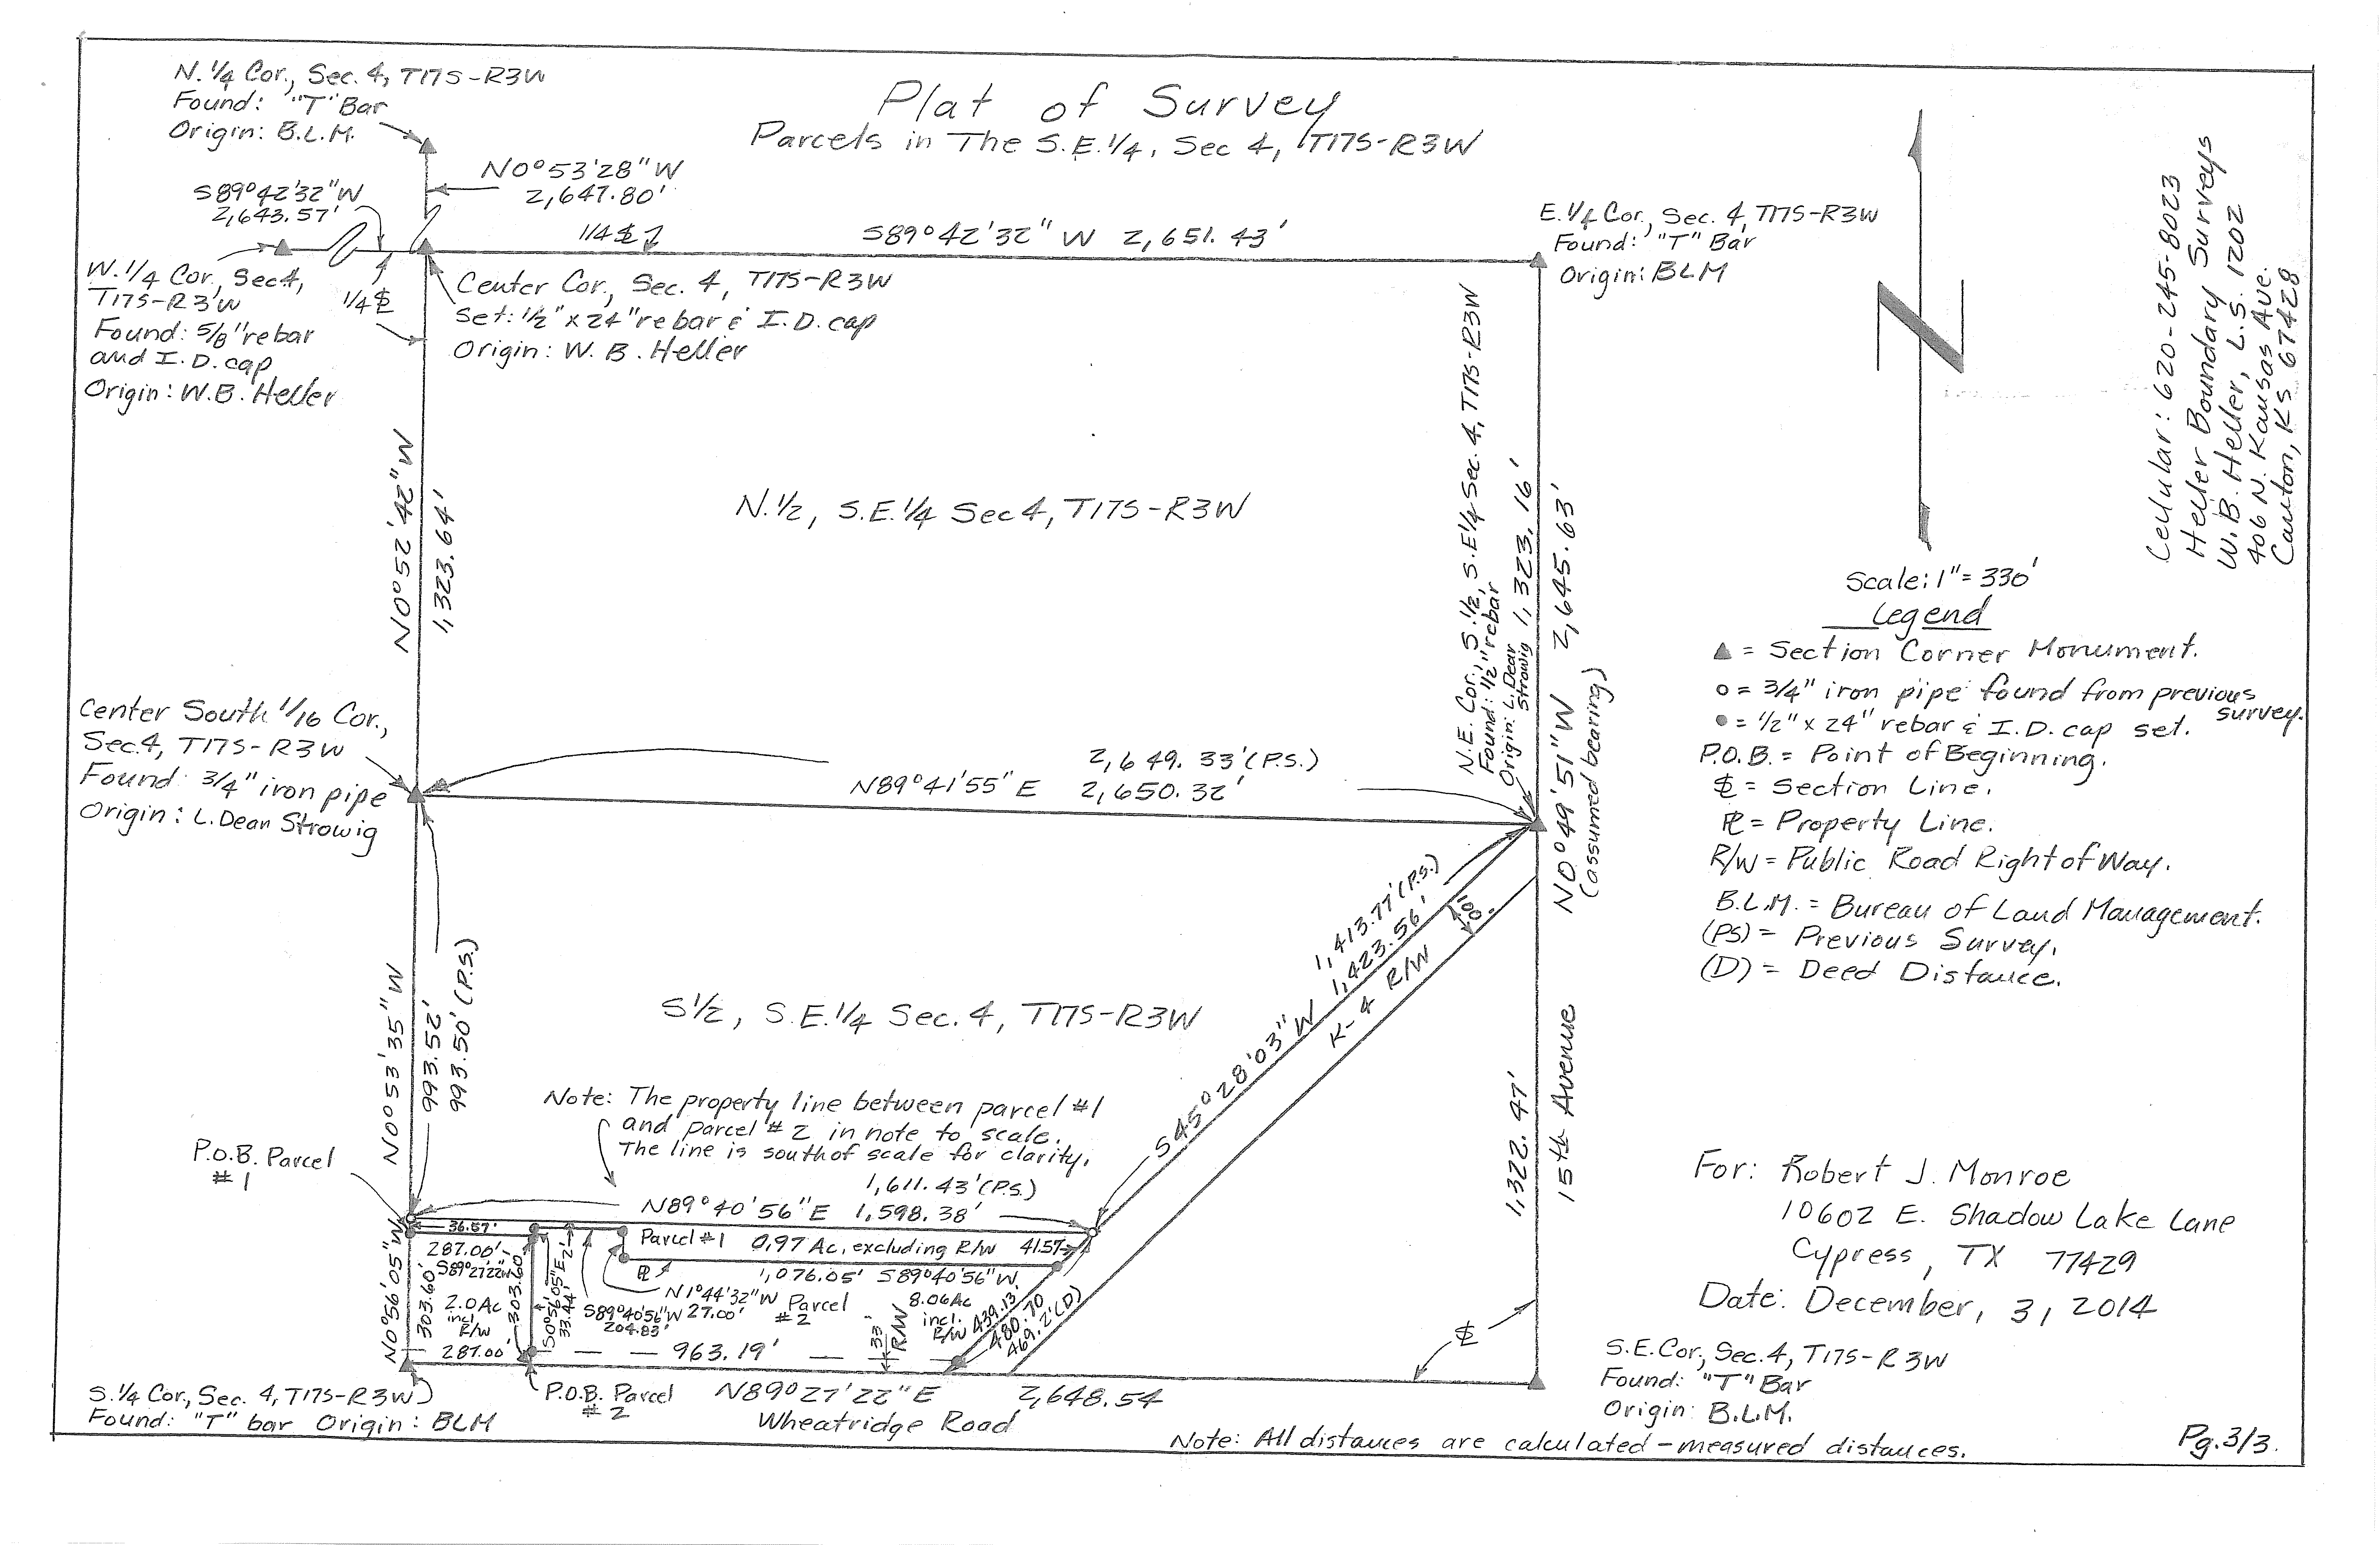 Plat of Survey
Parcels in The S.E.1/4, Sec 4, T17S-R3W
N.1/4 Cor., Sec. 4, T17S-R3W
Found: "T" Bar
Origin: B.L.M.
N0°53'28"W
2,647.80'
S89°42'32"W
2,643.57'
1/4 SL
S89°42'32" W 2,651.43'
E.1/4 Cor., Sec. 4, T17S-R3W
Found: "T" Bar
Origin: BLM
W.1/4 Cor., Sec 4,
T17S-R3W
Found: 5/8" rebar
and I.D. cap
Origin: W.B. Heller
1/4 SL
Center Cor., Sec. 4, T17S-R3W
Set: 1/2" x 24" rebar & I.D. cap
Origin: W. B. Heller
N0°52'42"W
1,323.64'
N.1/2, S.E.1/4 Sec 4, T17S-R3W
N.E. Cor., S.1/2, S.E1/4 Sec. 4, T17S-R3W
Found: 1/2" rebar
Origin: L. Dean
Strowig
1,323.16'
N0°49'51"W 2,645.63'
(assumed bearing)
Cellular: 620-245-8023
Heller Boundary Surveys
W. B. Heller, L.S. 1202
406 N. Kansas Ave.
Canton, KS 67428
N
Scale: 1" = 330'
Legend
▲ = Section Corner Monument.
o = 3/4" iron pipe found from previous
survey.
● = 1/2" x 24" rebar & I.D. cap set.
P.O.B. = Point of Beginning.
SL = Section Line.
PL = Property Line.
R/W = Public Road Right of Way.
B.L.M. = Bureau of Land Management.
(PS) = Previous Survey.
(D) = Deed Distance.
Center South 1/16 Cor.,
Sec. 4, T17S-R3W
Found: 3/4" iron pipe
Origin: L. Dean Strowig
2,649.33'(P.S.)
N89°41'55" E 2,650.32'
N0°53'35"W
993.52'
993.50'(P.S.)
S1/2, S.E.1/4 Sec. 4, T17S-R3W
1,413.77'(P.S.)
S45°28'03"W 1,423.56'
100'
K-4 R/W
1,322.47'
15th Avenue
Note: The property line between parcel #1
and parcel #2 in note to scale.
The line is south of scale for clarity.
P.O.B. Parcel
#1
1,611.43'(P.S.)
N89°40'56"E 1,598.38'
36.57'
Parcel #1 0.97 Ac, excluding R/W 41.57
287.00'
S89°27'22"W
PL
1,076.05' S89°40'56"W
N0°56'05"W
303.60'
2.0 Ac
incl
R/W
303.60'
S0°56'05"E
33.44'
2'
N1°44'32"W
27.00'
S89°40'56"W
204.83'
Parcel
#2
8.06 Ac
incl.
R/W
439.13
480.70
469.2'(D)
287.00'
963.19'
33'
R/W
SL
S.1/4 Cor., Sec. 4, T17S-R3W
Found: "T" bar Origin: BLM
P.O.B. Parcel
#2
N89°27'22"E 2,648.54
Wheatridge Road
For: Robert J. Monroe
10602 E. Shadow Lake Lane
Cypress, TX 77429
Date: December, 3, 2014
S.E. Cor., Sec. 4, T17S-R3W
Found: "T" Bar
Origin: B.L.M.
Note: All distances are calculated-measured distances.
Pg. 3/3.